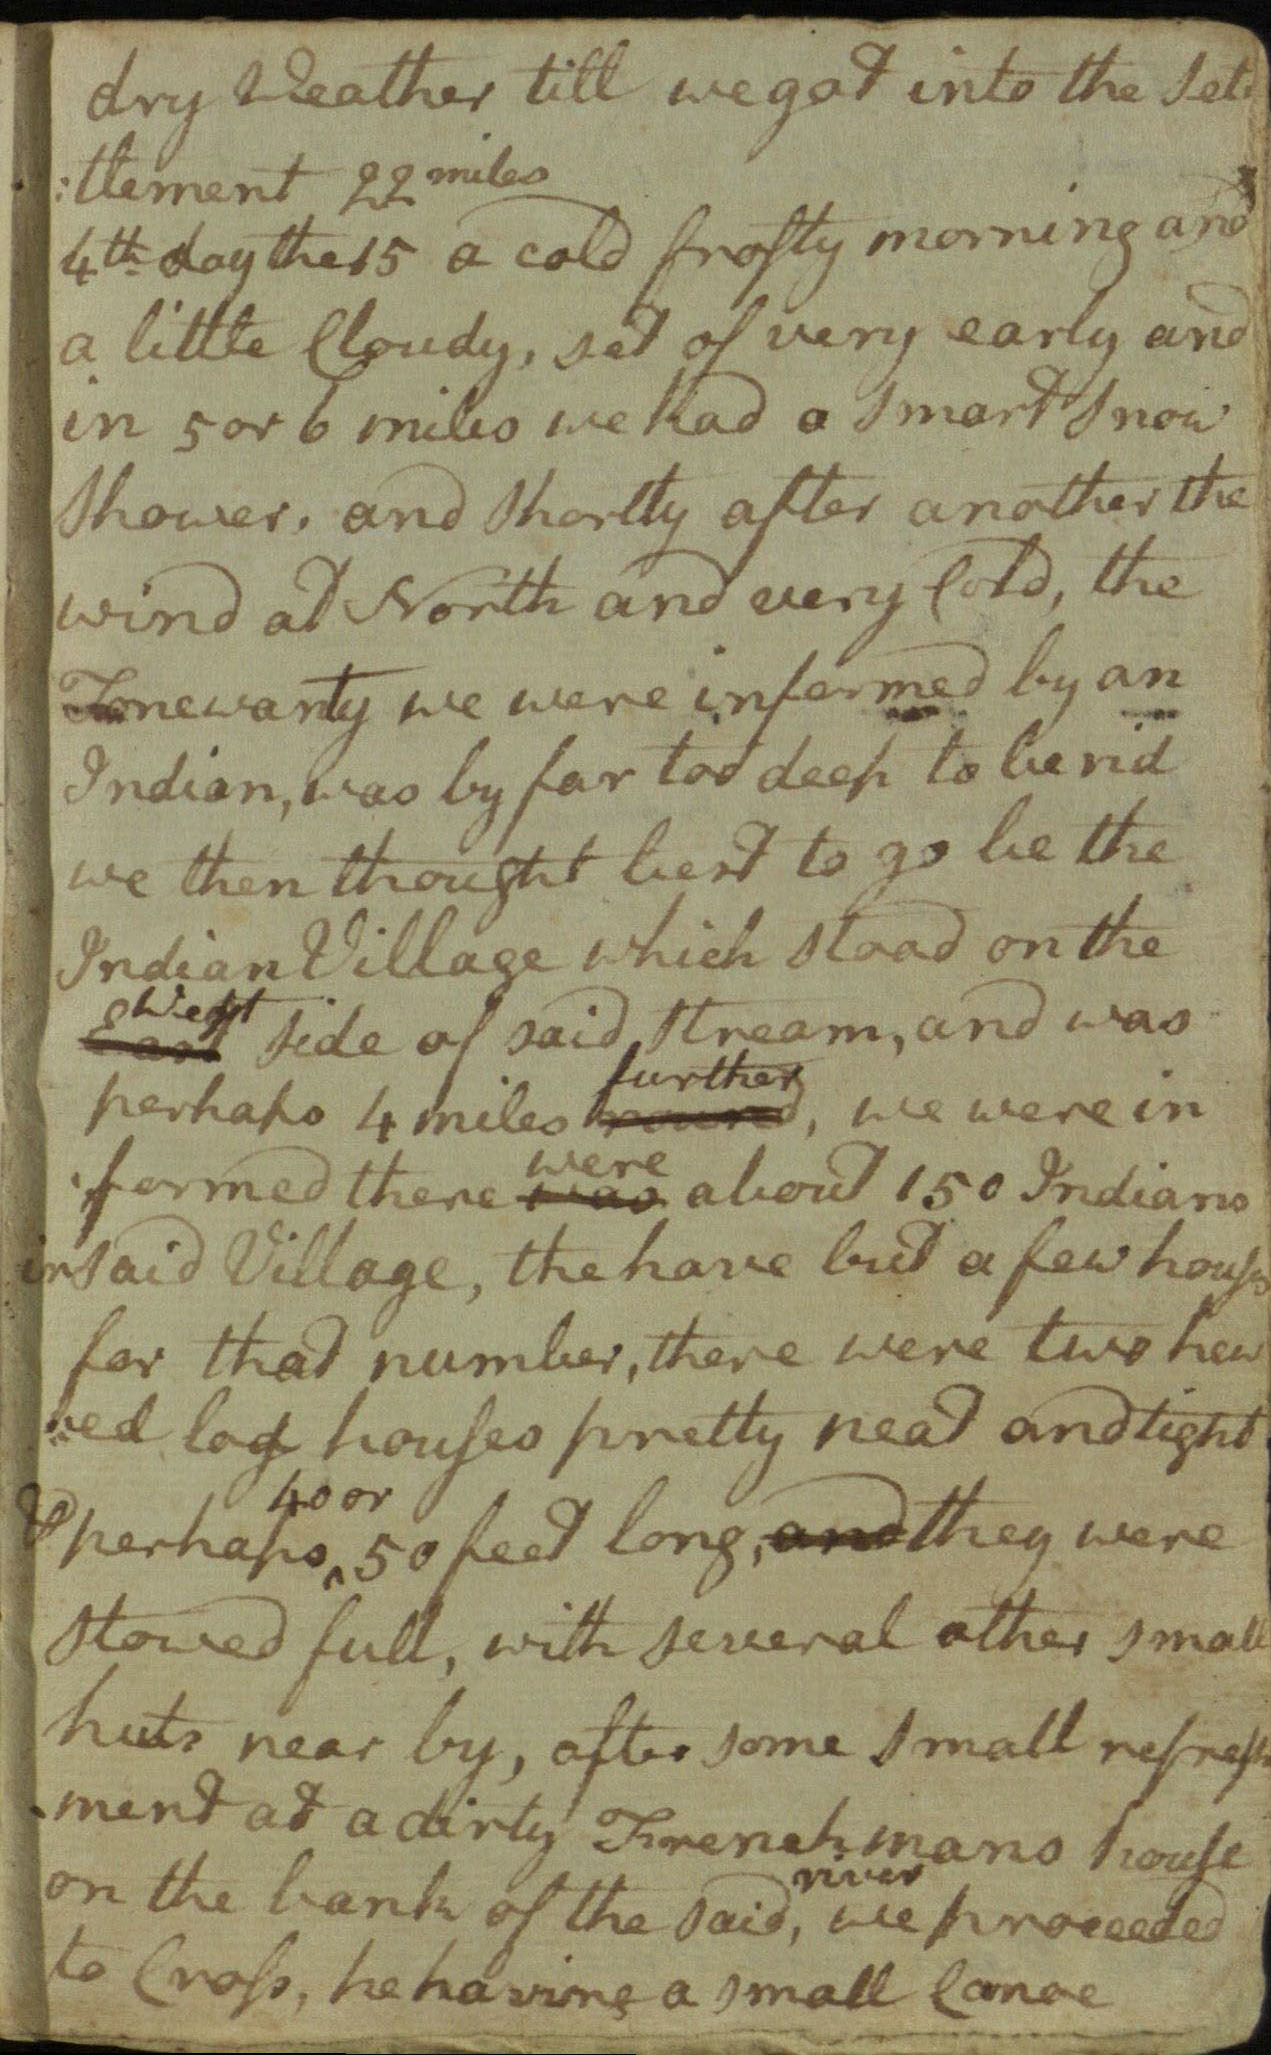 dry Weather till we got into the Set
:tlement 22 miles
4th day the 15 a cold frosty morning and
a little Cloudy, set of very early and
in 5 or 6 miles we had a Smart Snow
Shower, and Shortly after another the
wind at North and very Cold, the
Tonewanty we were informed by an
Indian, was by far too deep to be rid
we then thought best to go be the
Indian Village which stood on the
West
East side of said Stream, and was
further
perhaps 4 miles round, we were in
were
formed there was about 150 Indians
in said Village, the have but a few houses
for that number, there were two hew
ed log houses pretty neat and tight
40 or
& perhaps ^ 50 feet long, and they were
stowed full, with several other small
huts near by, after some small refresh
ment at a dirty Frenchmans house
river
on the bank of the said, we proceeded
to Cross, he having a small Canoe